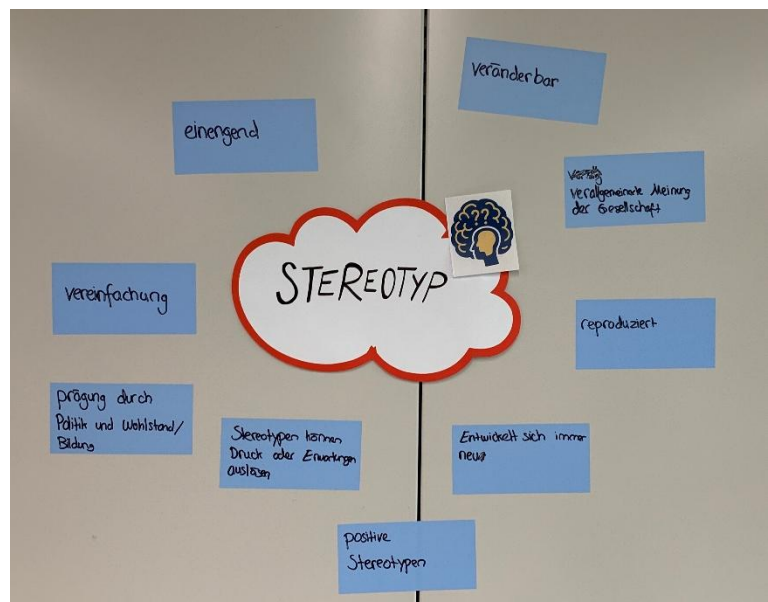 veränderbar
einengend
verallgemeinerte Meinung
der Gesellschaft
STEREOTYP
vereinfachung
reproduziert
prägung durch
Politik und Wohlstand/
Bildung
Stereotypen können
Druck oder Erwartungen
auslösen
Entwickelt sich immer
neu
positive
Stereotypen
??